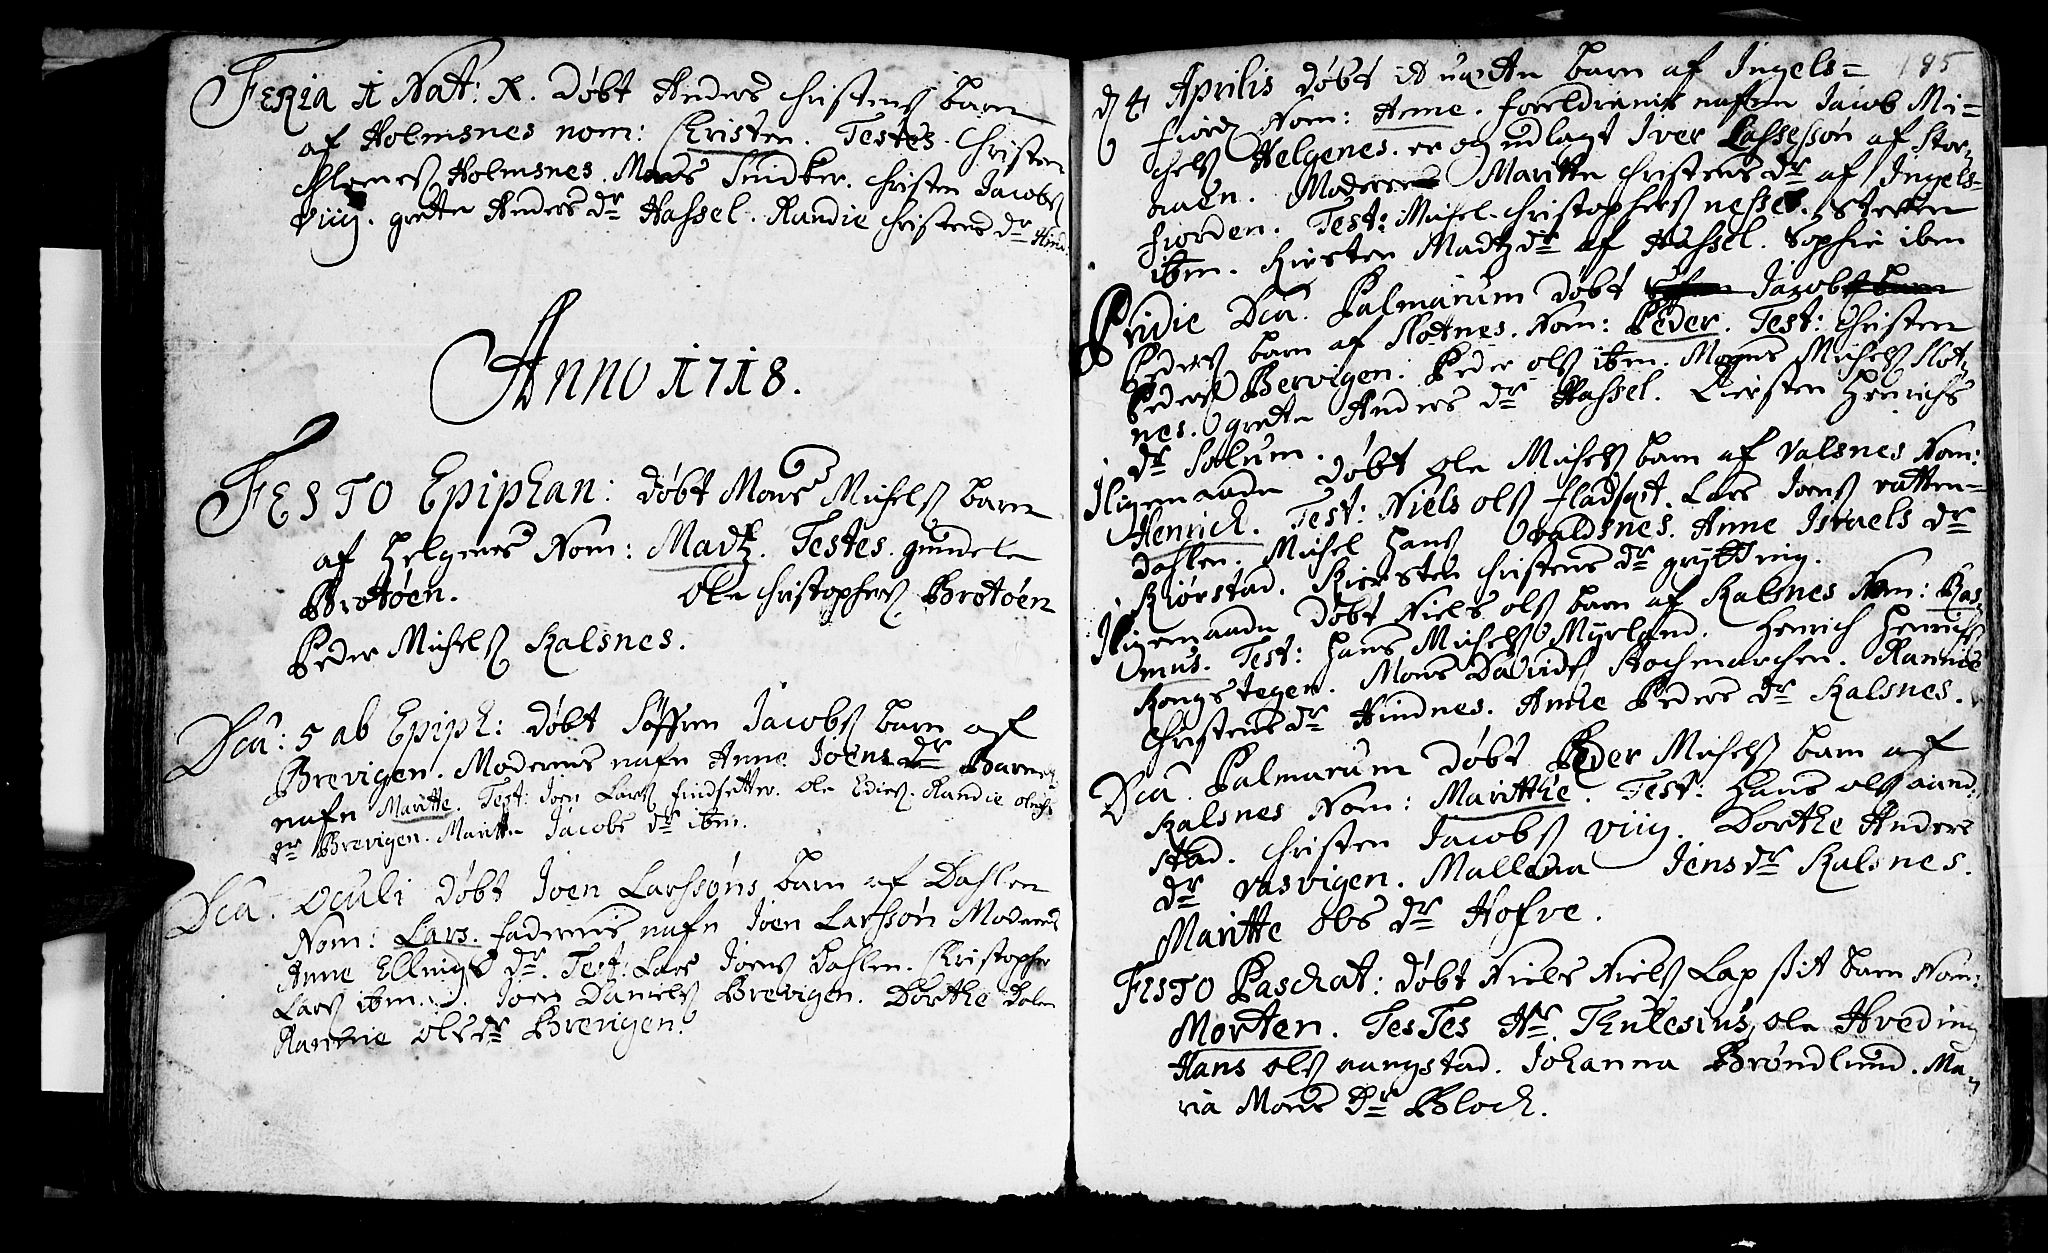 Feria 1 Nat: X. Døbt Anders Christens barn
af Holmsnes nom: Christen. Testes. Christen
Holmsnes. Mons Sindker. Christen Jacobs
Viig. grete Anders dr Hassel. Randie Christens dr Hind
Anno 1718.
Festo Epiphan: døbt Mons Michels barn
af Helgenes Nom: Madtz. Testes. gundele
Brotøen. Ole Christophers Brotøen
Peder Michels Kalsnes.
Dca: 5 ab Epiph: døbt Søffren Jacobs barn af
Brevigen. Moderens nafn Anne Joens dr Barnets
nafn Maritte. Test: Joen Lars findsetter. Ole Edies. Randie
dr Brevigen. Maritte Jacobs dr ibm.
Dca. Oculi døbt Joen Larssøns barn af Dahlen
Nom: Lars. faderens nafn Joen Larssøn Moderens
Anne Ellings dr. Test: Lars Joens Dahlen. Christopher
Lars ibm. Joen Daniels Brevigen. Dorthe Dalen
Rannie Ols dr Brevigen.
185
d 4 Aprilis døbt it uæcte barn af Ingels=
fiord Nom: Anne. foreldrenis nafen Jacob Mi=
chels Helgenes. er og udlagt Iver Lassessøn af Stor
øuen. Moderens Maritte Christens dr af Ingels=
fiorden. Test: Michel Christophers nesse. Steffen
ibm. Kirsten Madtz dr af Hassel. Sophie ibm
Pridie Dca. Palmarum døbt Jacob
Peders barn af Slotnes. Nom: Peder. Test: Christen
Peders Bervigen. Peder Ols ibm. Mogns Michels Slot
nes. grete Anders dr Hassel. Kiersten Henrichs
dr Sølum.
Iligemaade døbt Ole Michels barn af Valsnes Nom:
Henrich. Test: Niels Ols fladset. Lars Joens vatten=
dahlen. Michel Hans Valdsnes. Anne Israels dr
Kiørstad. Kiersten Christens dr grytting.
Iligemaade døbt Niels Ols barn af Kalsnes Nom: Ras
mus. Test: Hans Michels Myrland. Henrich Henrichs
Kongstegen. Mons Davids Stochmarchen. Rannie
Christens dr Hindnes. Anne Peders dr Kalsnes.
Dca Palmarum døbt Peder Michels barn af
Kalsnes Nom: Maritthe. Test: Hans Ols aand:
stad. Christen Jacobs Viig. Dorthe Anders
dr Vasvigen. Mallena Jens dr Kalsnes.
Maritte Ols dr Hofve.
Festo Paschat: døbt Niels Niels Lap sit barn Nom:
Morten. Testes Hr Thulesius, Ole Hveding
Hans Ols aangstad. Johanna Brøndlund. Ma
ria Mons dr Bloch.